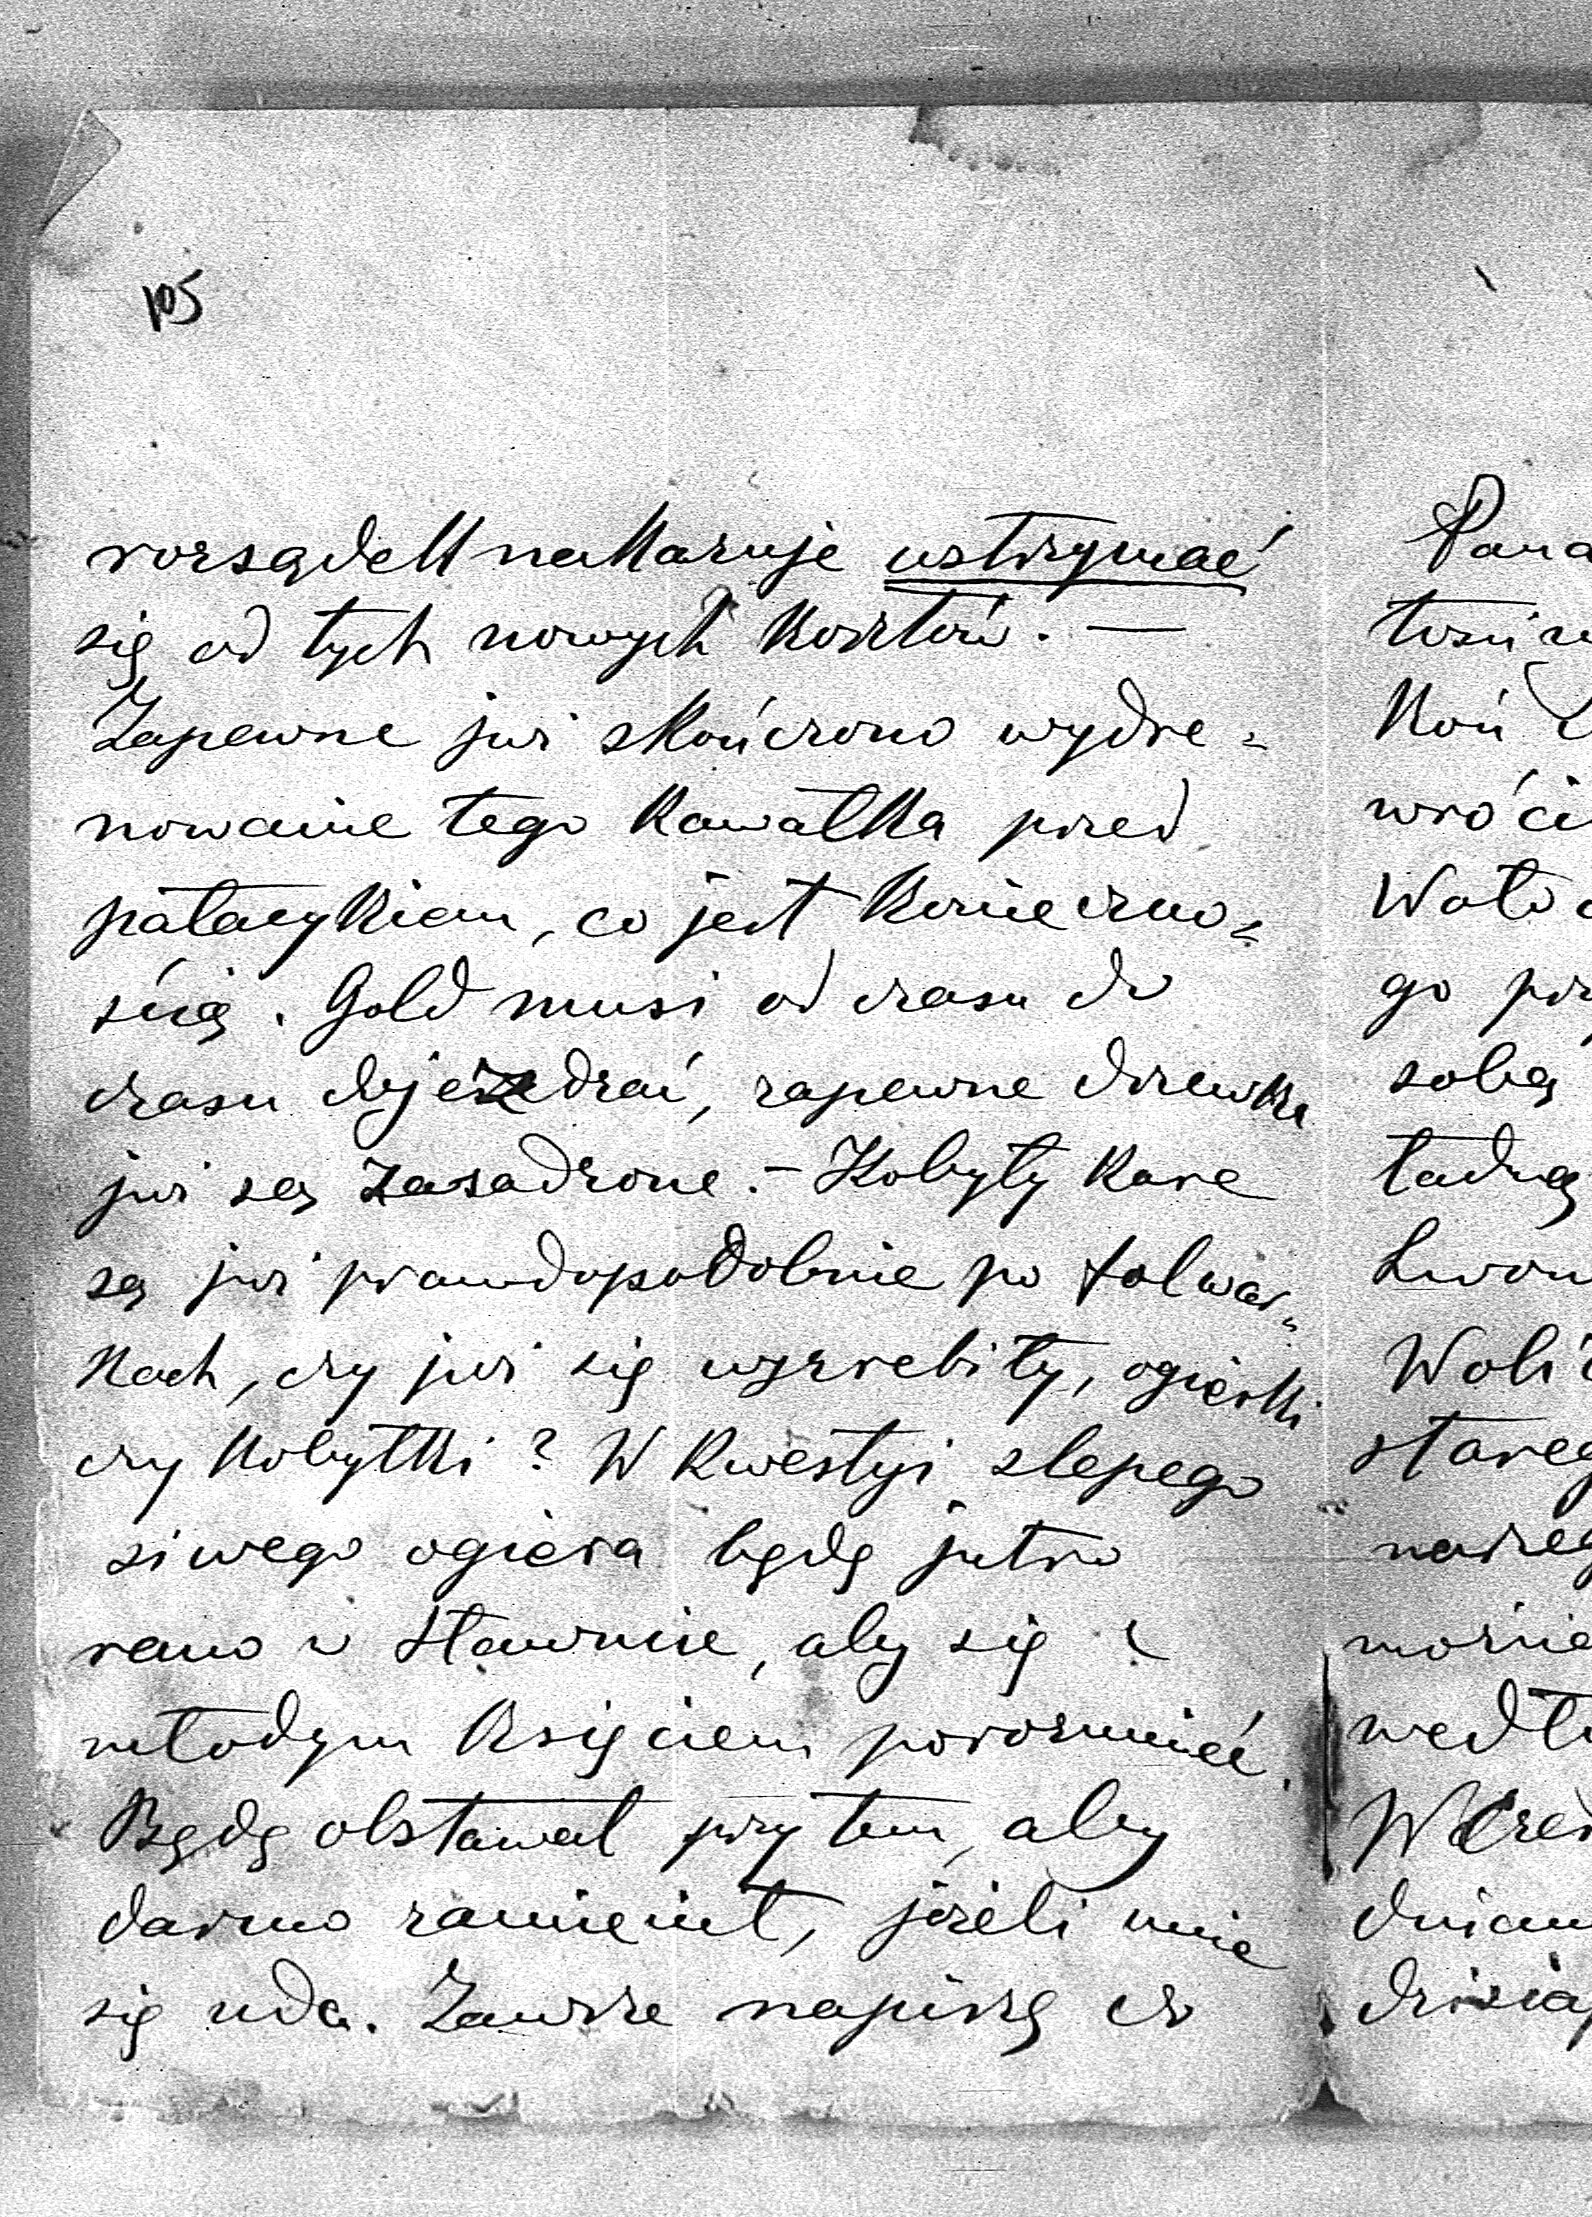 105
rozsądek nakazuje wstrzymać
się od tych nowych kosztów. —
Zapewne już skończono wydre-
nowanie tego kawałka przed
pałacykiem, co jest konieczno-
ścią. Gold musi od czasu do
czasu dojeżdzać, zapewne drzewka
już są zasadzone. - Kobyły kare
są już prawdopodobnie po folwar-
kach, czy już się wyźrebiły, ogierki
czy kobyłki? W kwestyi ślepego
siwego ogiera będę jutro
rano w Sławucie, aby się z
młodym Księciem porozumieć.
Będę obstawał przy tem, aby
darmo zamienił, jeżeli mnie
się uda. Zawsze napiszę co
Pana
Koń
wróci
go prz
sobą
ładną
Lwow
Woli
stareg
możne
wedłu
Wczes
dniam
dzisia